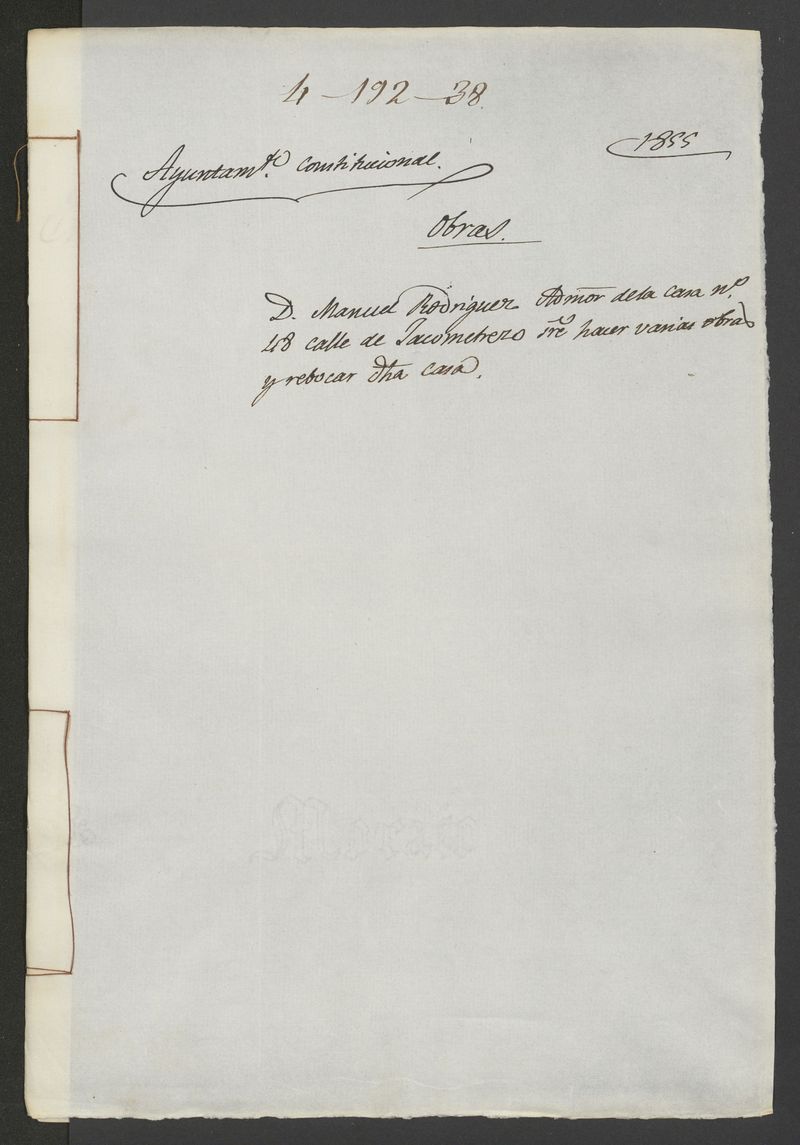 4-192-38
1855
Ayuntamto. Constitucional.
Obras.
D. Manuel Rodriguez Admor dela casa no.
48 calle de Jacometrezo sre hacer varias obras
y rebocar dha casa.